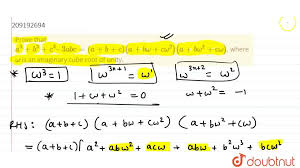 209192694
Prove that
a³ + b³ + c³ - 3abc = (a + b + c) (a + bω + cω²) (a + bω² + cω), where
ω is an imaginary cube root of unity.
* ω³ = 1 ω³ⁿ⁺¹ = ω ω³ⁿ⁺² = ω²
* 1 + ω + ω² = 0 ω + ω² = -1
RHS: (a+b+c) (a + bω + cω²) (a + bω² + cω)
= (a+b+c) [ a² + abω² + acω + abω + b²ω³ + bcω²
doubtnut